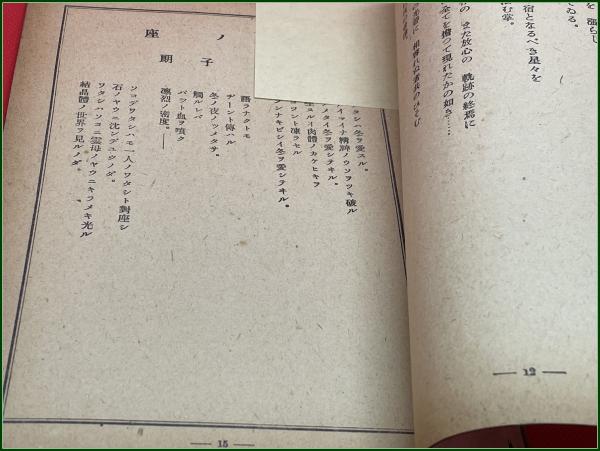 を濡らし
てゐる。
宿となるべき星々を
む掌。
また放心の 軌跡の終焉に
全てを擔つて現れたかの如き……
ノ
座
子
朗
タシハ冬ヲ愛スル。
イマイナ精神ノウソヲツキ破ル
ノメタイ冬ヲ愛シテキル。
ルイ肉體ノカケヒキヲ
ワント凍ラセル
ンナキビシイ冬ヲ愛シテキル。
語ラナクトモ
ヂーント傳ハル
冬ノ夜ノツメタサ。
觸ルレバ
パツト血ヲ噴ク
凛烈ノ密度。――
ソコデワタシハモ一人ノワタシト對座シ
石ノヤウニ沈ンデユウノダ。
ワタシハソコニ雲母ノヤウニキラメキ光ル
結晶體ノ世界ヲ見ルノダ。
— 12 —
— 15 —